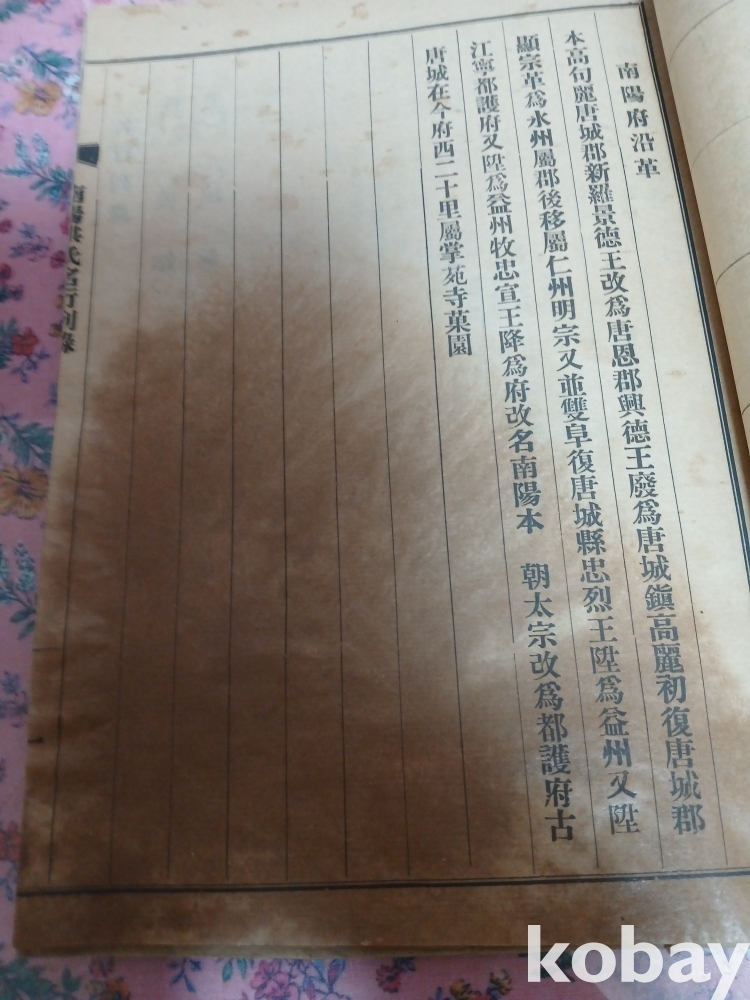 南陽府沿革
本高句麗唐城郡新羅景德王改爲唐恩郡興德王廢爲唐城鎭高麗初復唐城郡
顯宗革爲水州屬郡後移屬仁州明宗又並雙阜復唐城縣忠烈王陞爲益州又陞
江寧都護府又陞爲益州牧忠宣王降爲府改名南陽本 朝太宗改爲都護府古
唐城在今府西二十里屬掌苑寺菓園
南陽洪氏
kobay